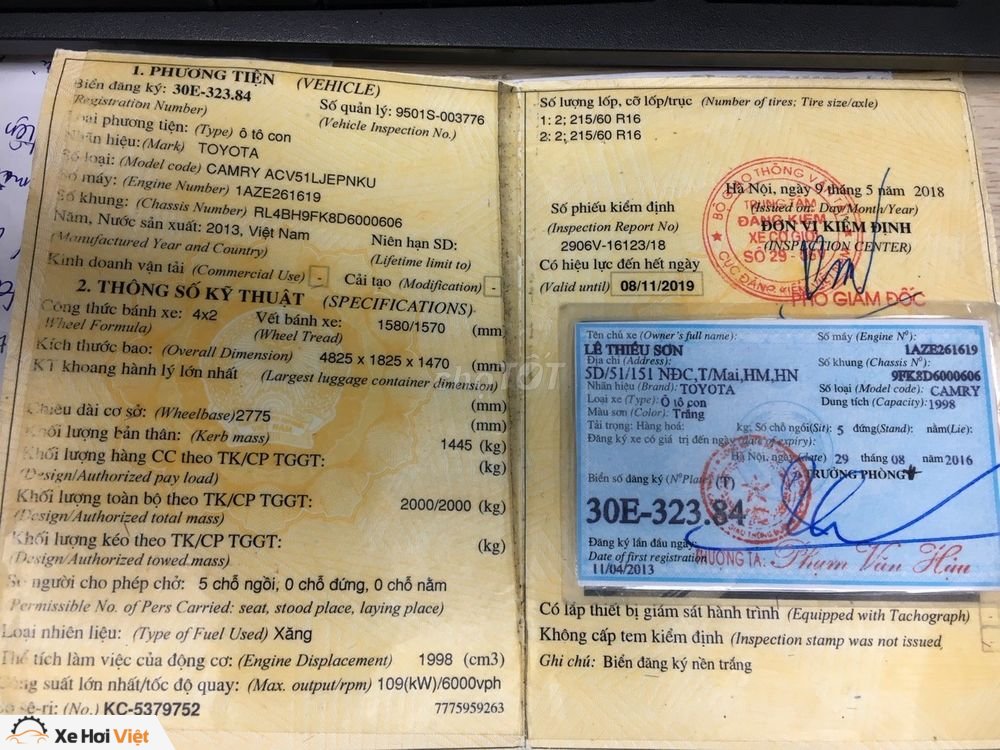 1. PHƯƠNG TIỆN (VEHICLE)
Biển đăng ký: 30E-323.84
(Registration Number)
Số quản lý: 9501S-003776
(Vehicle Inspection No.)
phương tiện: (Type) ô tô con
hiệu: (Mark) TOYOTA
loại: (Model code) CAMRY ACV51LJEPNKU
Số máy: (Engine Number) 1AZE261619
Số khung: (Chassis Number) RL4BH9FK8D6000606
Năm, Nước sản xuất: 2013, Việt Nam
(Manufactured Year and Country)
Niên hạn SD:
(Lifetime limit to)
Kinh doanh vận tải (Commercial Use) - Cải tạo (Modification) -
2. THÔNG SỐ KỸ THUẬT (SPECIFICATIONS)
Công thức bánh xe: 4x2
(Wheel Formula)
Vết bánh xe: 1580/1570 (mm)
(Wheel Tread)
Kích thước bao: (Overall Dimension) 4825 x 1825 x 1470 (mm)
KT khoang hành lý lớn nhất (Largest luggage container dimension)
(mm)
Chiều dài cơ sở: (Wheelbase) 2775 (mm)
Khối lượng bản thân: (Kerb mass) 1445 (kg)
Khối lượng hàng CC theo TK/CP TGGT: (kg)
(Design/Authorized pay load)
Khối lượng toàn bộ theo TK/CP TGGT: 2000/2000 (kg)
(Design/Authorized total mass)
Khối lượng kéo theo TK/CP TGGT: (kg)
(Design/Authorized towed mass)
Số người cho phép chở: 5 chỗ ngồi, 0 chỗ đứng, 0 chỗ nằm
(Permissible No. of Pers Carried: seat, stood place, laying place)
Loại nhiên liệu: (Type of Fuel Used) Xăng
Thể tích làm việc của động cơ: (Engine Displacement) 1998 (cm3)
suất lớn nhất/tốc độ quay: (Max. output/rpm) 109(kW)/6000vph
sê-ri: (No.) KC-5379752 7775959263
Số lượng lốp, cỡ lốp/trục (Number of tires; Tire size/axle)
1: 2; 215/60 R16
2: 2; 215/60 R16
Hà Nội, ngày 9 tháng 5 năm 2018
(Issued on: Day/Month/Year)
Số phiếu kiểm định
(Inspection Report No)
2906V-16123/18
ĐƠN VỊ KIỂM ĐỊNH
(INSPECTION CENTER)
BỘ GIAO THÔNG
TRUNG TÂM
ĐĂNG KIỂM
XE CƠ GIỚI
SỐ 29 - 06V
CỤC ĐĂNG KIỂM
Có hiệu lực đến hết ngày
(Valid until) 08/11/2019
PHÓ GIÁM ĐỐC
Tên chủ xe (Owner's full name):
LÊ THIỀU SƠN
Số máy (Engine Nº):
1AZE261619
Địa chỉ (Address):
5D/51/151 NĐC,T/Mai,HM,HN
Số khung (Chassis Nº):
9FK8D6000606
Nhãn hiệu (Brand): TOYOTA
Số loại (Model code): CAMRY
Loại xe (Type): Ô tô con
Dung tích (Capacity): 1998
Màu sơn (Color): Trắng
Tải trọng: Hàng hoá: kg; Số chỗ ngồi(Sit): 5 đứng(Stand): nằm(Lie):
Đăng ký xe có giá trị đến ngày (date of expiry):
Hà Nội, ngày (date) 29 tháng 08 năm 2016
Biển số đăng ký (Nº Plate) (T)
TRƯỞNG PHÒNG
30E-323.84
Đăng ký lần đầu ngày
Date of first registration
11/04/2013
THƯỢNG TÁ: Phạm Văn Hậu
Có lắp thiết bị giám sát hành trình (Equipped with Tachograph) -
Không cấp tem kiểm định (Inspection stamp was not issued
Ghi chú: Biển đăng ký nền trắng
Xe Hơi Việt